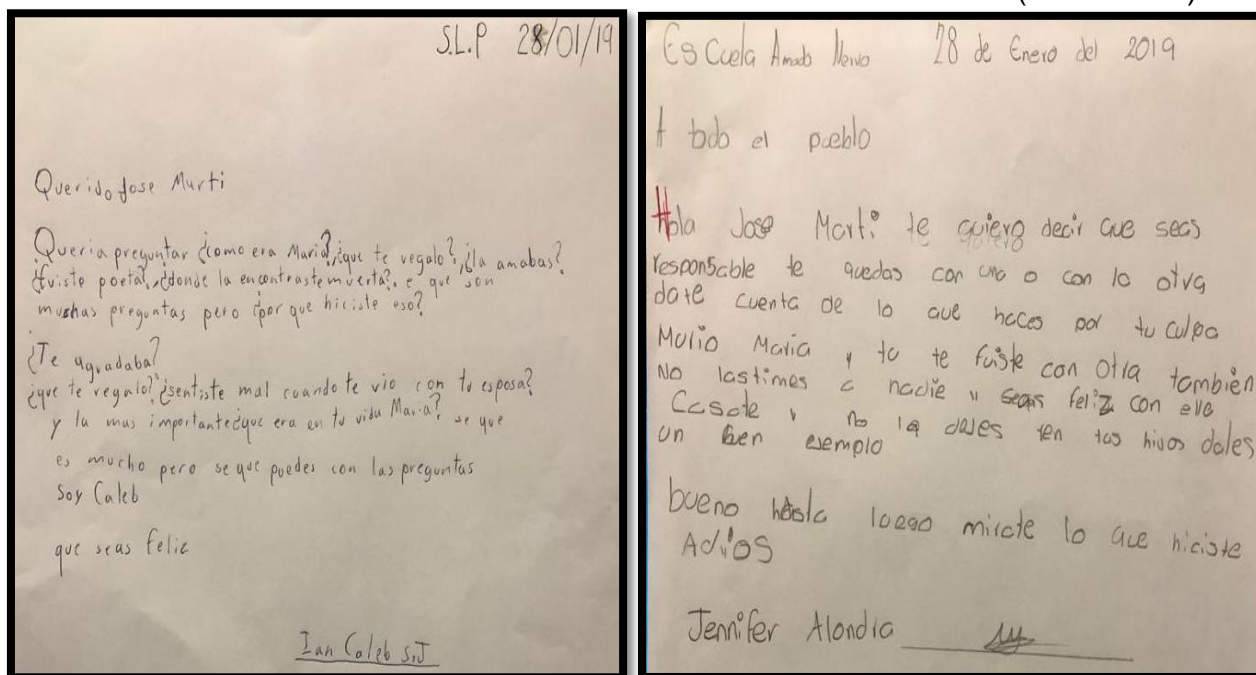 S.L.P 28/01/19
Querido Jose Marti
Queria preguntar ¿como era Maria?, ¿que te regalo?, ¿la amabas?
¿fuiste poeta?, ¿donde la encontraste muerta?, e que son
muchas preguntas pero ¿por que hiciste eso?
¿Te agradaba?
¿que te regalo? ¿sentiste mal cuando te vio con tu esposa?
y la mas importante ¿que era en tu vida Maria? se que
es mucho pero se que puedes con las preguntas
Soy Caleb
que seas feliz
Ian Caleb S.J
Escuela Amado Nervo 28 de Enero del 2019
A todo el pueblo
Hola Jose Marti te quiero decir que seas
responsable te quedas con una o con la otra
date cuenta de lo que haces por tu culpa
Murio Maria y tu te fuiste con otra también
No lastimes a nadie y seas feliz con ella
Casate y no la dejes ten tus hijos dales
un buen ejemplo
bueno hasta luego mirate lo que hiciste
Adios
Jennifer Alondra